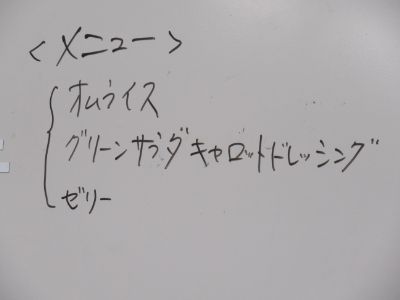 <メニュー>
オムライス
グリーンサラダキャロットドレッシング
ゼリー